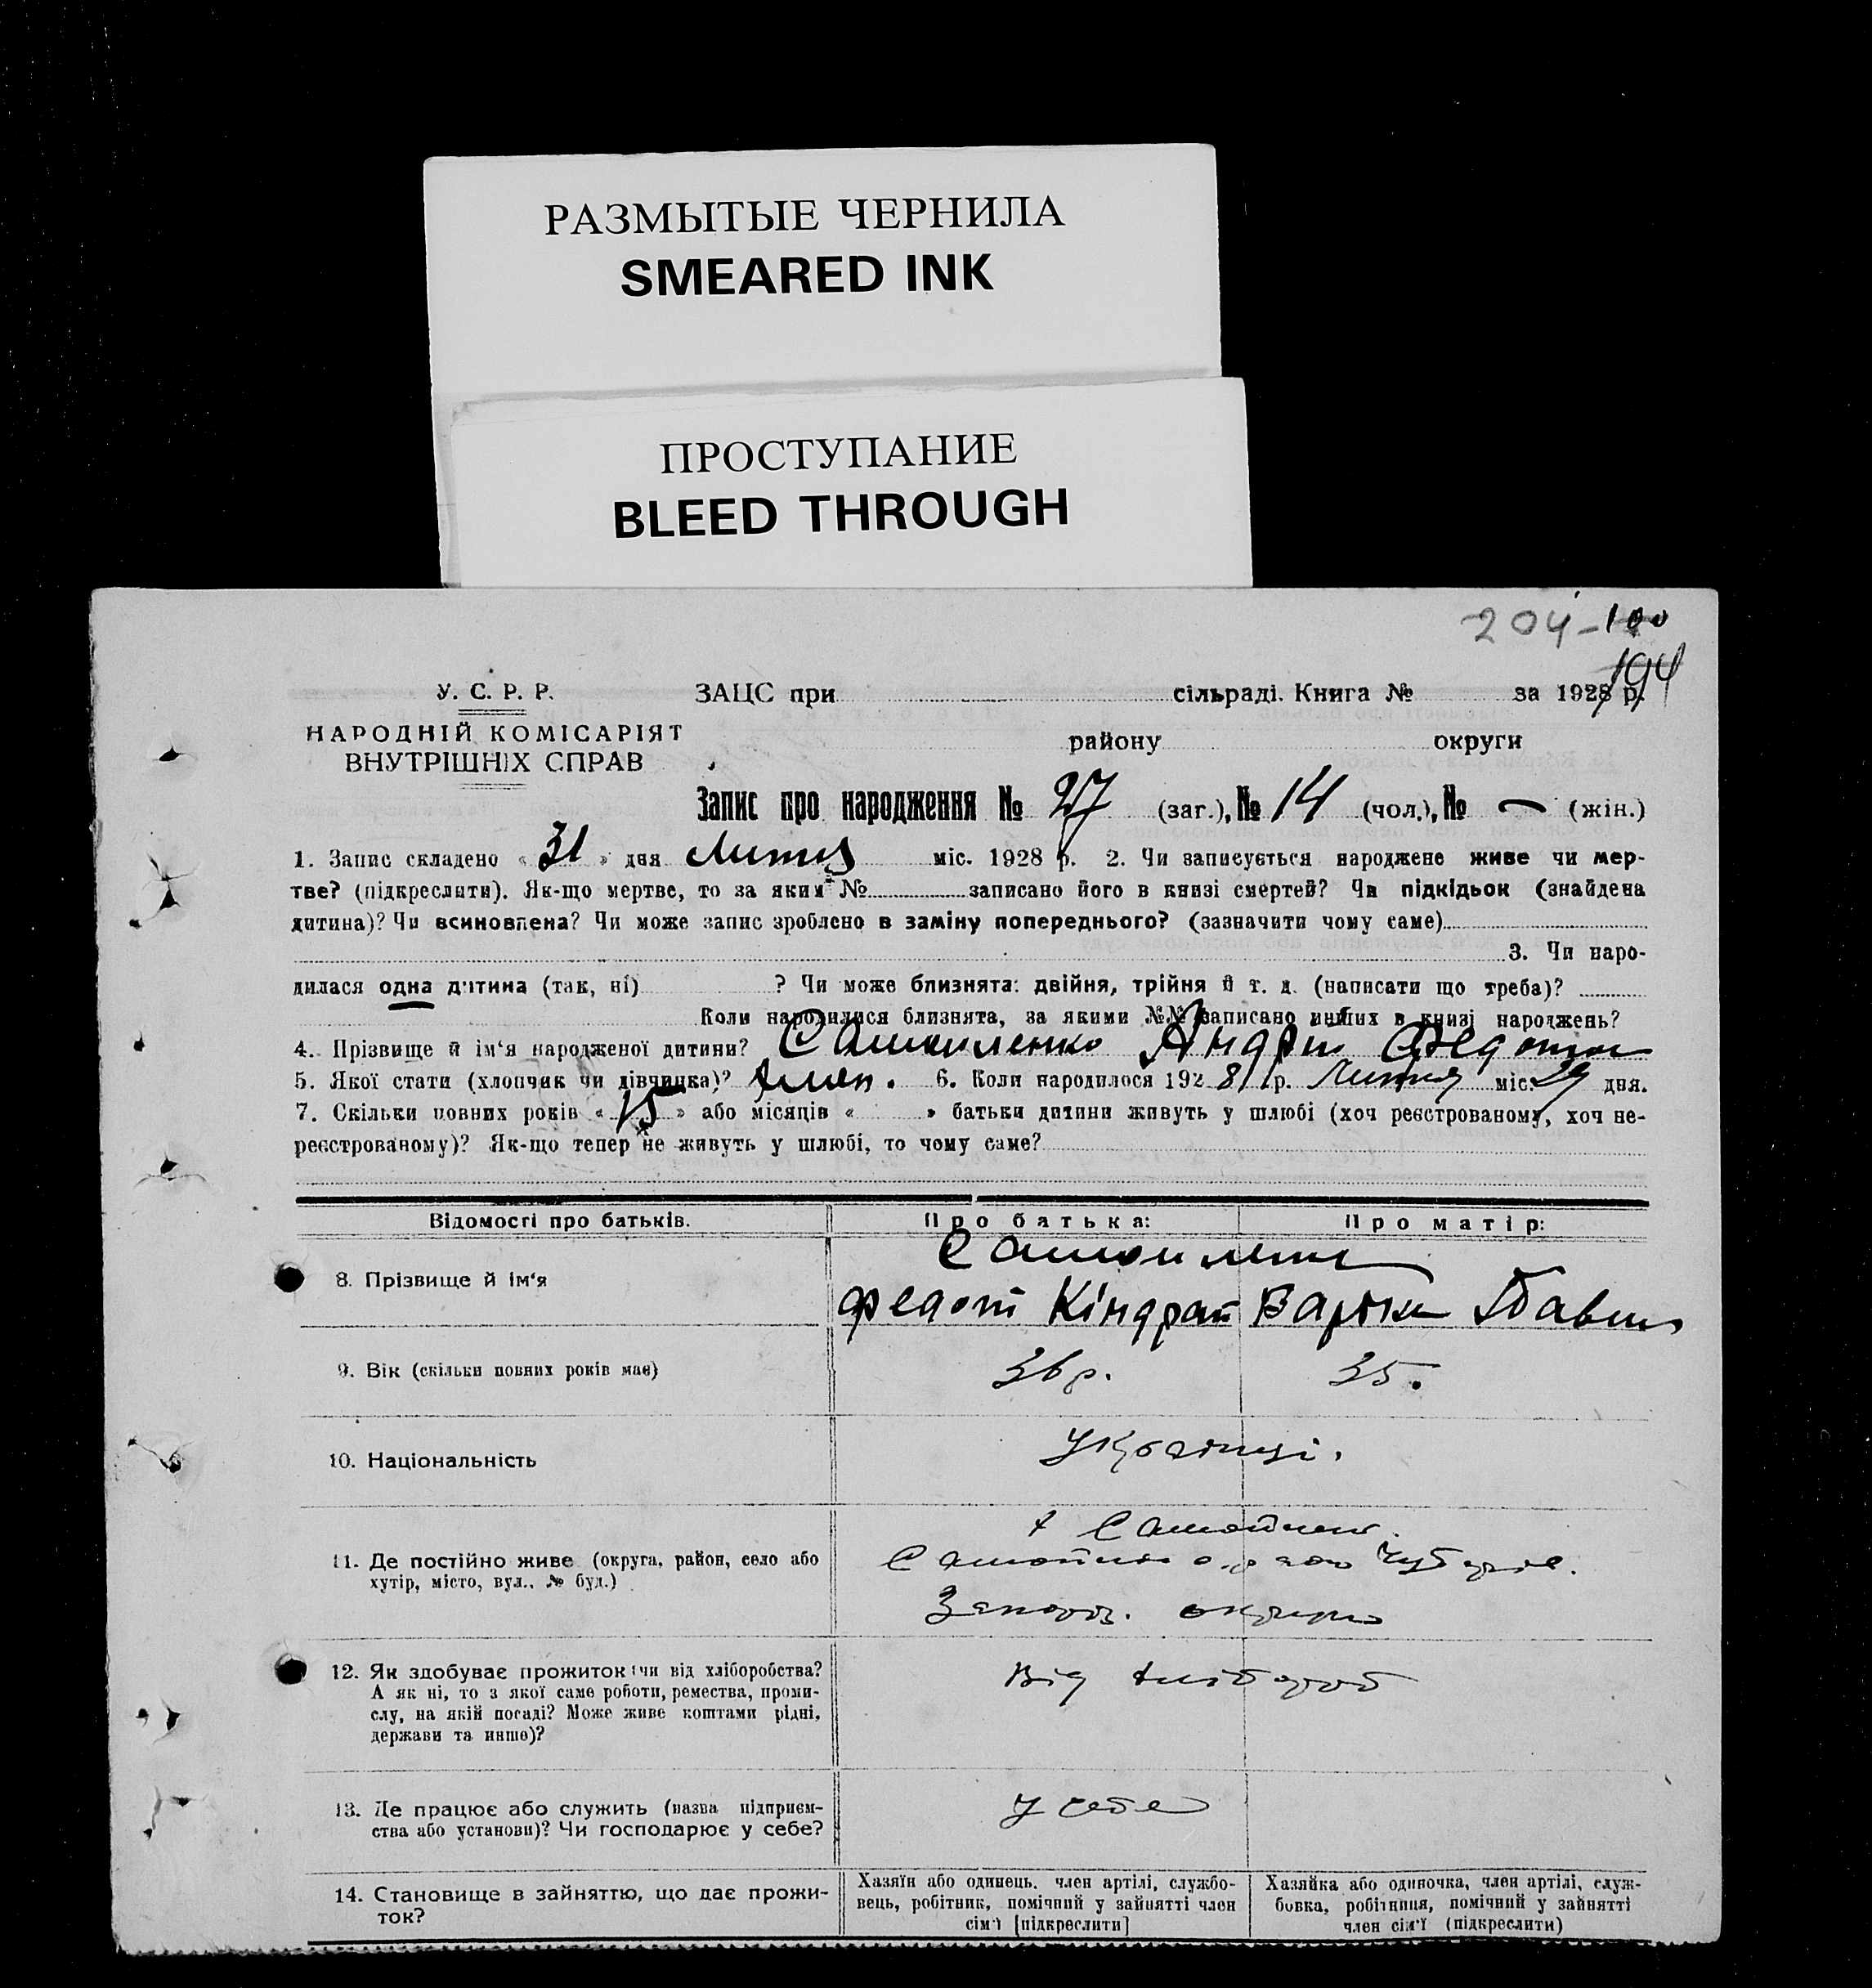 РАЗМЫТЫЕ ЧЕРНИЛА
SMEARED INK
ПРОСТУПАНИЕ
BLEED THROUGH
204-100
194
У. С. Р. Р.
НАРОДНІЙ КОМІСАРІЯТ
ВНУТРІШНІХ СПРАВ
ЗАЦС при сільраді. Книга № за 1928 р.
району округи
Запис про народження № 27 (заг.), № 14 (чол.), № — (жін.)
1. Запис складено « 31 » дня Лютня міс. 1928 р. 2. Чи записується народжене живе чи мер-
тве? (підкреслити). Як-що мертве, то за яким № записано його в книзі смертей? Чи підкідьок (знайдена
дитина)? Чи всиновлена? Чи може запис зроблено в заміну попереднього? (зазначити чому саме)
3. Чи наро-
дилася одна дитина (так, ні) ? Чи може близнята: двійня, трійня й т. д. (написати що треба)?
Коли народилися близнята, за якими №№ записано инших в книзі народжень?
4. Прізвище й ім‘я народженої дитини? Самойленко Андрій Федотов
5. Якої стати (хлопчик чи дівчинка)? хлоп. 6. Коли народилося 1928 р. Лютня міс. 29 дня.
7. Скільки повних років « 15 » або місяців « » батьки дитини живуть у шлюбі (хоч реєстрованому, хоч не-
реєстрованому)? Як-що тепер не живуть у шлюбі, то чому саме?
Відомості про батьків. Про батька: Про матір:
Самойленк
8. Прізвище й ім‘я
Федот Кіндрат Варька
9. Вік (скільки повних років має) 36 р. 35.
10. Національність Українці.
11. Де постійно живе (округа, район, село або
хутір, місто, вул., № буд.)
Запоріз. округи
12. Як здобуває прожиток (чи від хліборобства?
А як ні, то з якої саме роботи, ремества, проми-
слу, на якій посаді? Може живе коштами рідні,
держави та инше)?
Від хлібороб
13. Де працює або служить (назва підприєм-
ства або установи)? Чи господарює у себе?
У себе
14. Становище в зайняттю, що дає прожи-
ток?
Хазяїн або одинець, член артілі, службо-
вець, робітник, помічний у зайнятті член
сім‘ї [підкреслити]
Хазяйка або одиночка, член артілі, служ-
бовка, робітниця, помічний у зайнятті
член сім‘ї (підкреслити)